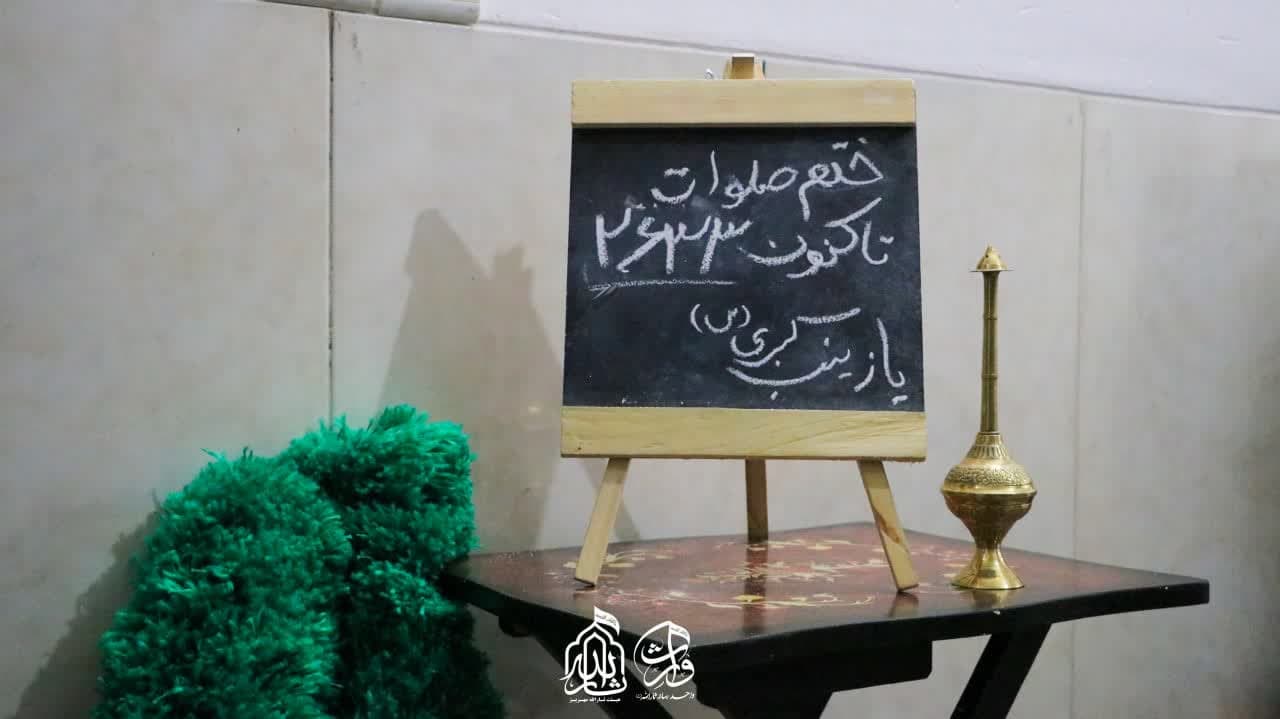 ختم صلوات
تاکنون ۲۶۳۳
یا زینب کبری (س)
ثارالله
وارث